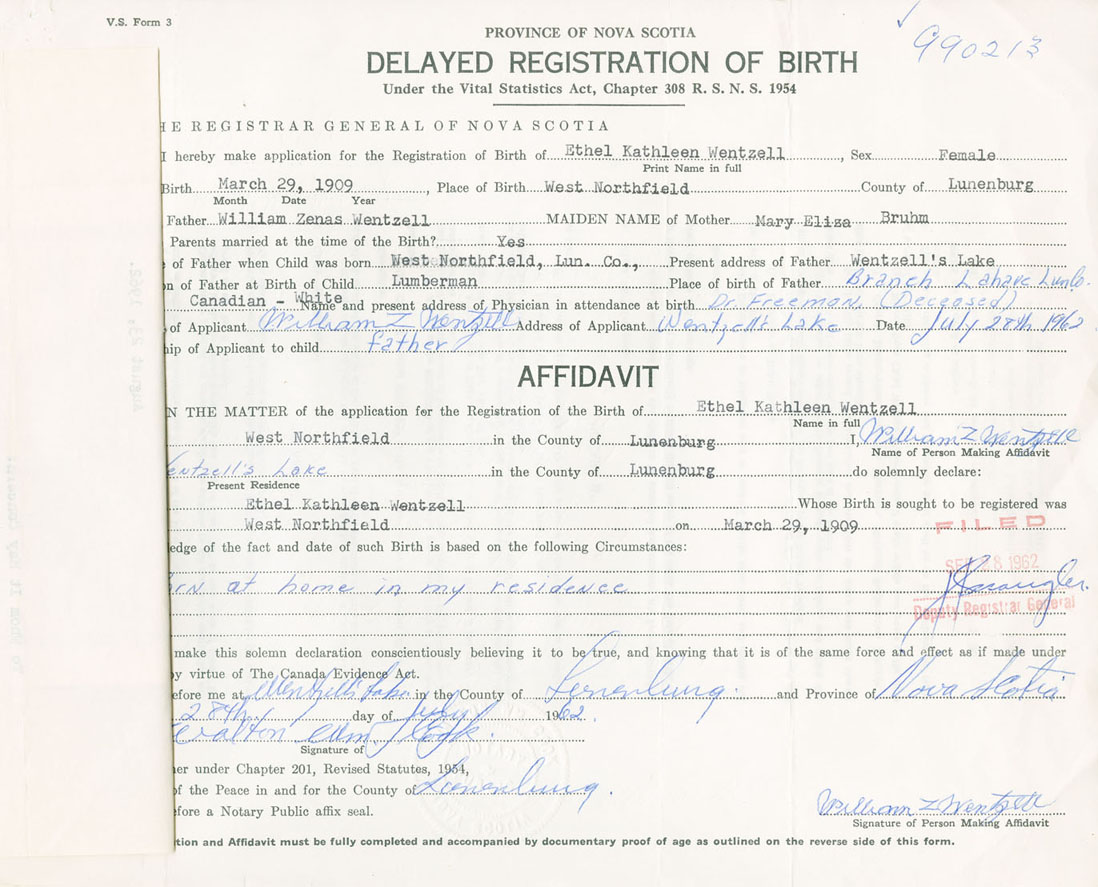 V.S. Form 3
990213
PROVINCE OF NOVA SCOTIA
DELAYED REGISTRATION OF BIRTH
Under the Vital Statistics Act, Chapter 308 R. S. N. S. 1954
HE REGISTRAR GENERAL OF NOVA SCOTIA
I hereby make application for the Registration of Birth of Ethel Kathleen Wentzell, Sex Female
Print Name in full
Birth March 29, 1909, Place of Birth West Northfield County of Lunenburg
Month Date Year
Father William Zenas Wentzell MAIDEN NAME of Mother Mary Eliza Bruhm
Parents married at the time of the Birth? Yes
of Father when Child was born West Northfield, Lun. Co., Present address of Father Wentzell's Lake
n of Father at Birth of Child Lumberman Place of birth of Father Branch Lahave Lun Co.
Canadian - White Name and present address of Physician in attendance at birth Dr. Freeman (Deceased)
of Applicant William Z Wentzell Address of Applicant Wentzell's Lake Date July 28th 1962
ip of Applicant to child father
AFFIDAVIT
N THE MATTER of the application for the Registration of the Birth of Ethel Kathleen Wentzell
Name in full
West Northfield in the County of Lunenburg I, William Z Wentzell
Name of Person Making Affidavit
entzell's Lake in the County of Lunenburg do solemnly declare:
Present Residence
Ethel Kathleen Wentzell Whose Birth is sought to be registered was
West Northfield on March 29, 1909
FILED
edge of the fact and date of such Birth is based on the following Circumstances:
SEP 28 1962
rn at home in my residence
Deputy Registrar General
make this solemn declaration conscientiously believing it to be true, and knowing that it is of the same force and effect as if made under
y virtue of The Canada Evidence Act.
efore me at Wentzell's Lake in the County of Lunenburg and Province of Nova Scotia
28th day of July 1962
Signature of
er under Chapter 201, Revised Statutes, 1954,
of the Peace in and for the County of Lunenburg.
efore a Notary Public affix seal.
William Z Wentzell
Signature of Person Making Affidavit
tion and Affidavit must be fully completed and accompanied by documentary proof of age as outlined on the reverse side of this form.